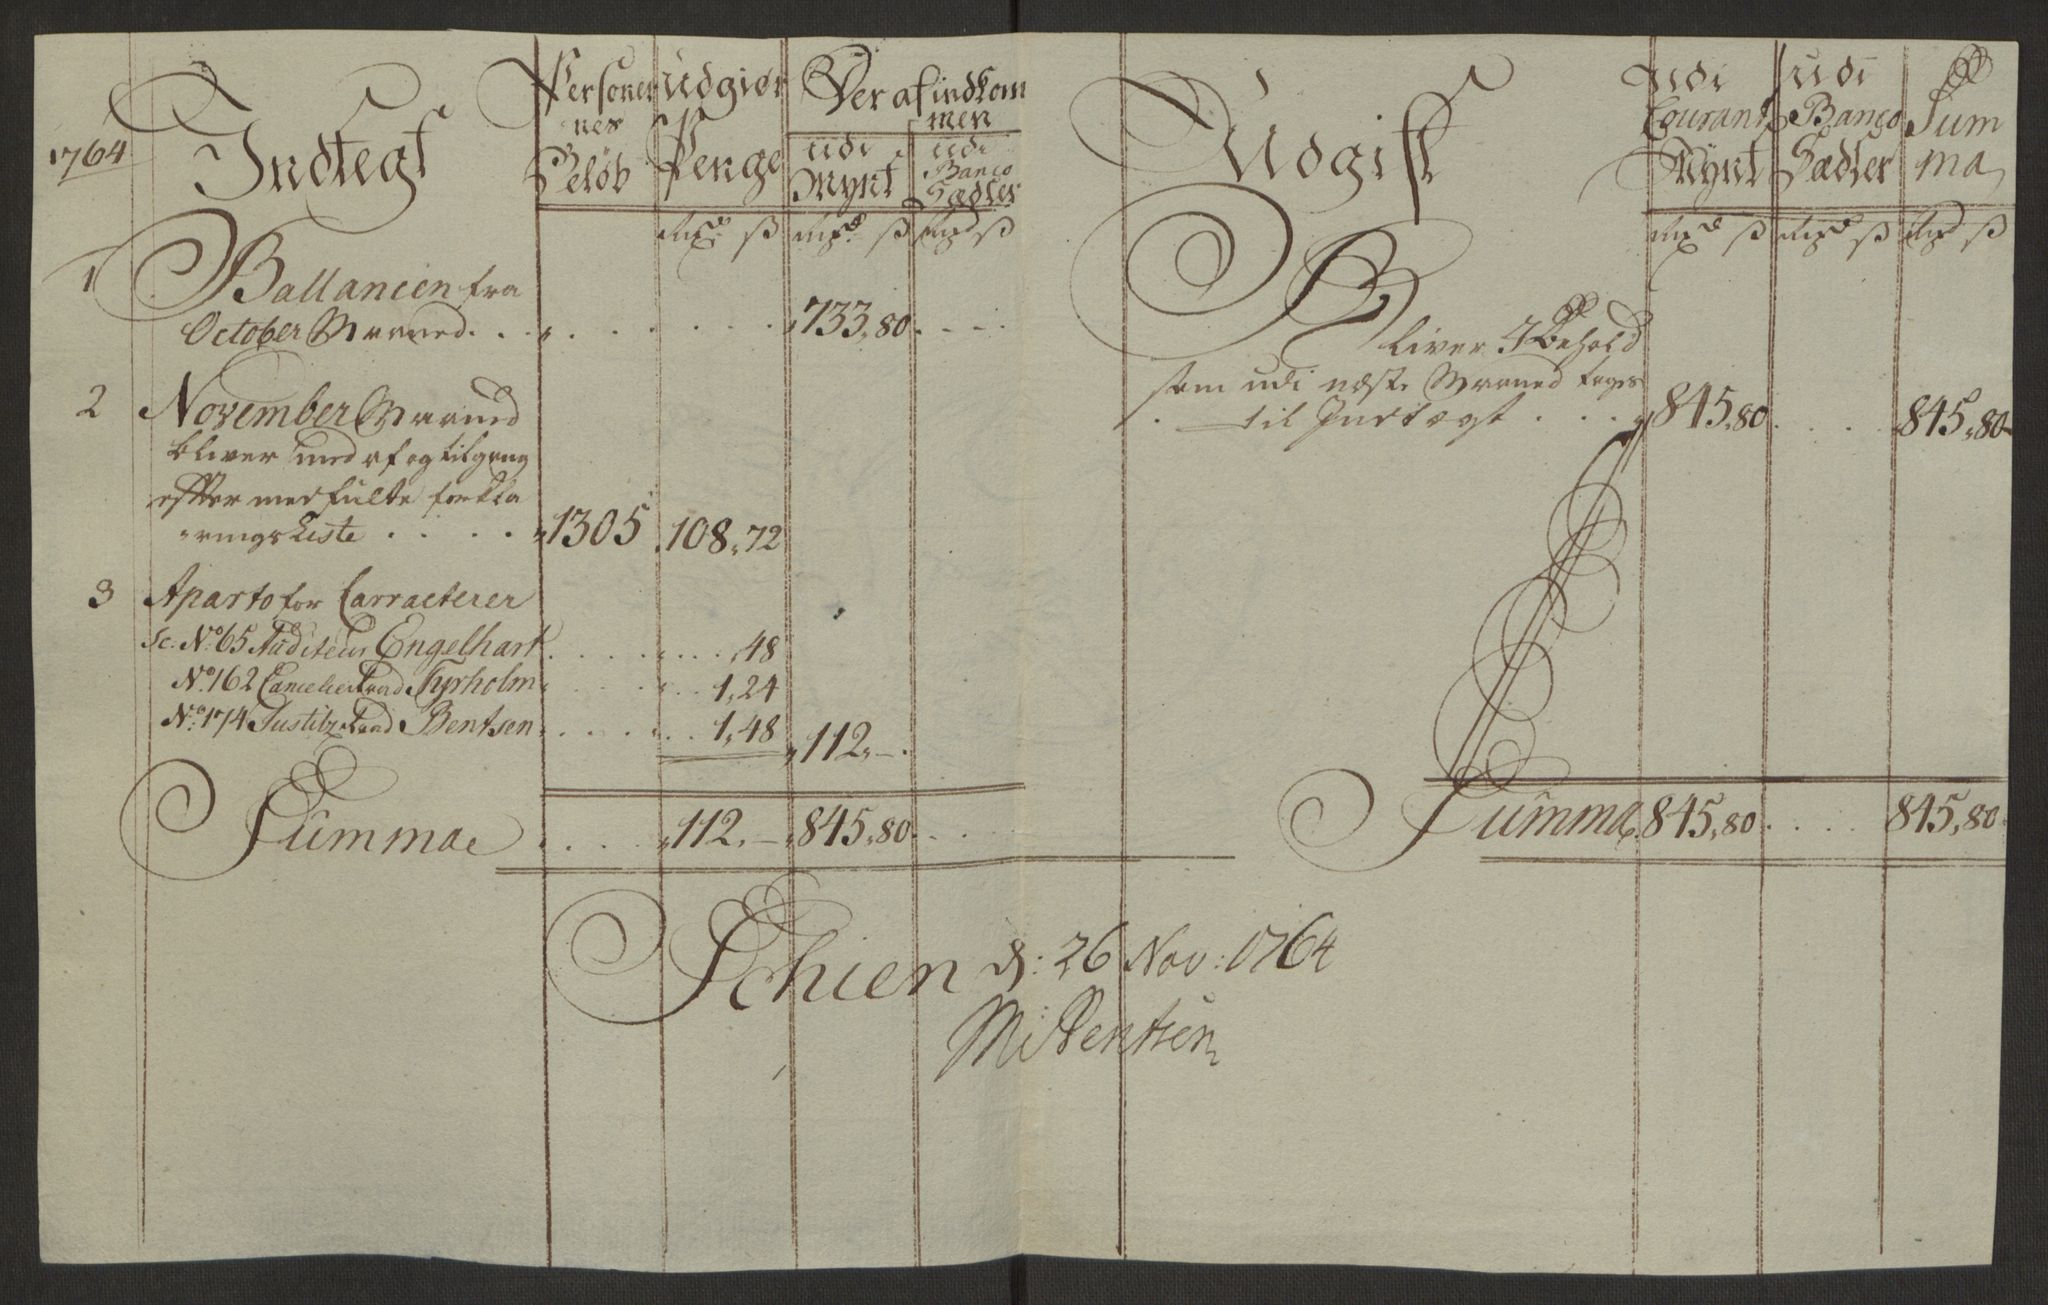 1764
Indtegt
Personer
nes
Beløb
Udgiør
Penge
Der af indkom
men
udi
Mynt
udi
Banco
Sædler
Rixd ß Rixd ß Rixd ß
1 Ballancen fra
October Maaned . . . . . . 733,80 . . .
2 November Maaned
bliver med af og tilgang
efter medfulte forkla
rings Liste . . . . 1305 108,72
3 Aparto for Carracterer
Sc. No. 65 Auditeur Engelhart . . . . ,48
No. 162 Cancelieraad Tyrholm . . . 1,24
No. 174 Justitz Raad Bentsen . . . 1,48 112,—
Summa . . . . 112,— 845,80 . . .
Udgift
Udi
Courant
Mynt
udi
Banco
Sædler
Sum
ma
Rixd ß Rixd ß Rixd ß
Bliver I Behold
som udi næste Maaned tages
til Indtægt . . . 845,80 . . . . 845,80
Summa 845,80 . . . . 845,80
Schien d: 26 Nov: 1764
M: Bentsen